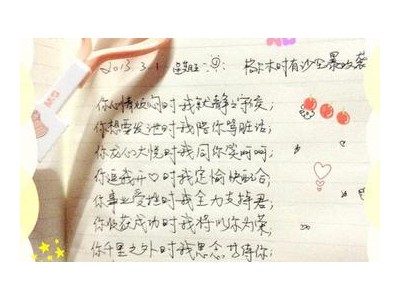 2013 3.1 星期五 格尔木时有沙尘暴改袭
你心情烦闷时我就静静守候;
你想要发泄时我陪你骂脏话;
你欢心大悦时我同你笑呵呵;
你逗我开♡时我定愉快配合;
你事业受挫时我全力支撑君;
你收获成功时我将以你为荣;
你千里之外时我思念苦待你;